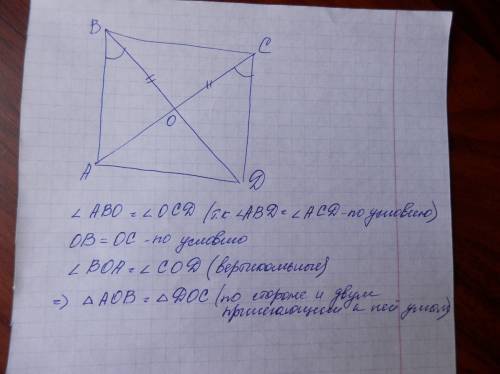 B
C
O
A
D
∠ABO = ∠OCD (т.к ∠ABD = ∠ACD - по условию)
OB = OC - по условию
∠BOA = ∠COD (вертикальные)
=> △AOB = △DOC (по стороне и двум
прилегающим к ней углам)